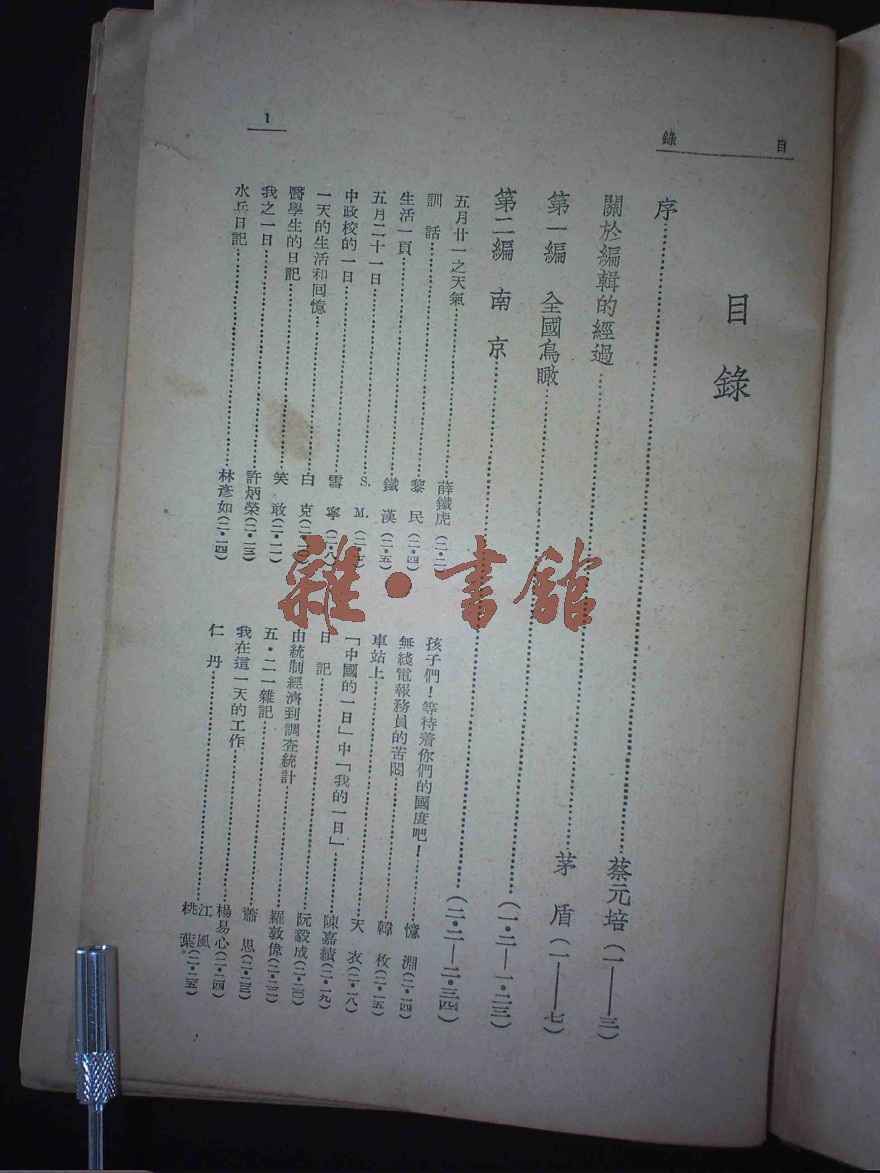 目錄
目錄
序……蔡元培（一——三）
關於編輯的經過……茅盾（一——七）
第一編 全國鳥瞰……（一·二—一·二三）
第二編 南京……（二·二—二·三四）
五月廿一之天氣……薛鐵虎（二·二）
訓話……黎民（二·四）
生活一頁……鐵漢（二·五）
五月二十一日……S. M.（二·七）
中政校的一日……雪寧（二·八）
一天的生活和回憶……白克
醫學生的日記……笑敢（二·一一）
我之一日……許炳榮（二·一三）
水兵日記……林彥如（二·一四）
孩子們！等待着你們的國度吧！……憶淵（二·一四）
無綫電報務員的苦悶……韓枚（二·一五）
車站上……天衣（二·一八）
「中國的一日」中「我的一日」……陳嘉績（二·一九）
日記……阮毅成（二·二〇）
由統制經濟到調查統計……羅敦偉（二·二二）
五·二一雜記……蕭思（二·二三）
我在這一天的工作……楊易心（二·二四）
仁丹……江風 桃葉（二·二五）
1
雜·書館